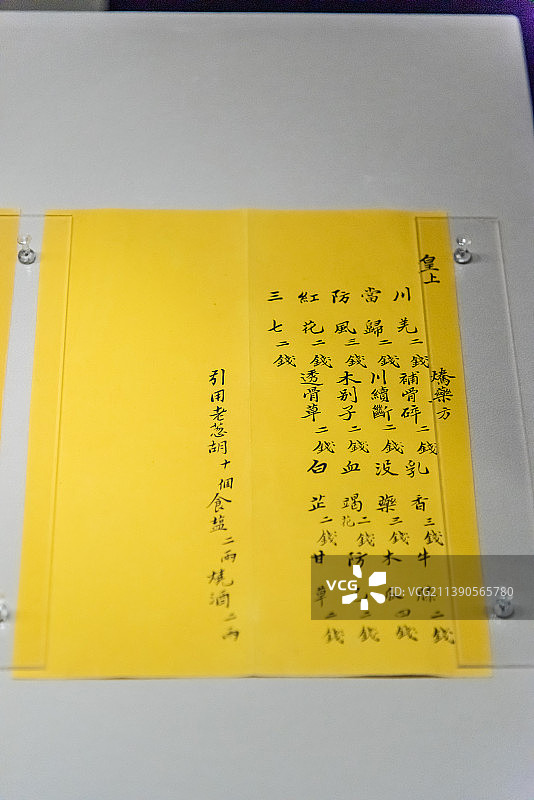 皇上 藥方
川羌二錢 補骨碎二錢 乳香三錢 牛膝二錢
當歸二錢 川續斷二錢 没藥三錢 木 四錢
防風三錢 木别子二錢 血竭花二錢 防 二錢
紅花二錢 透骨草二錢 白芷二錢 甘草二錢
三七二錢
引用老葱胡十個食盐二両燒酒二両
VCG
VCG.COM
ID:VCG211390565780